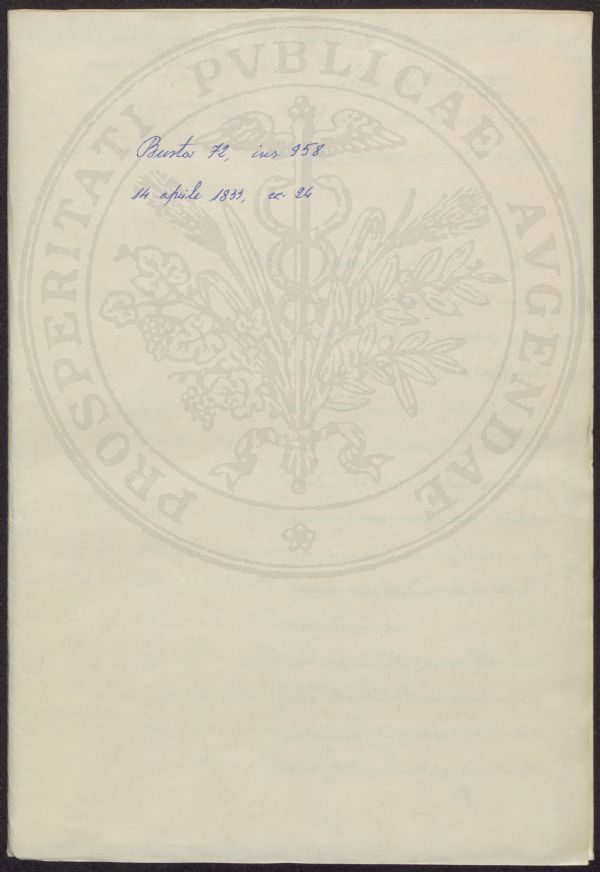 PROSPERITATI PVBLICAE AVGENDAE
Busta 72, ins. 958
14 aprile 1833, cc. 24